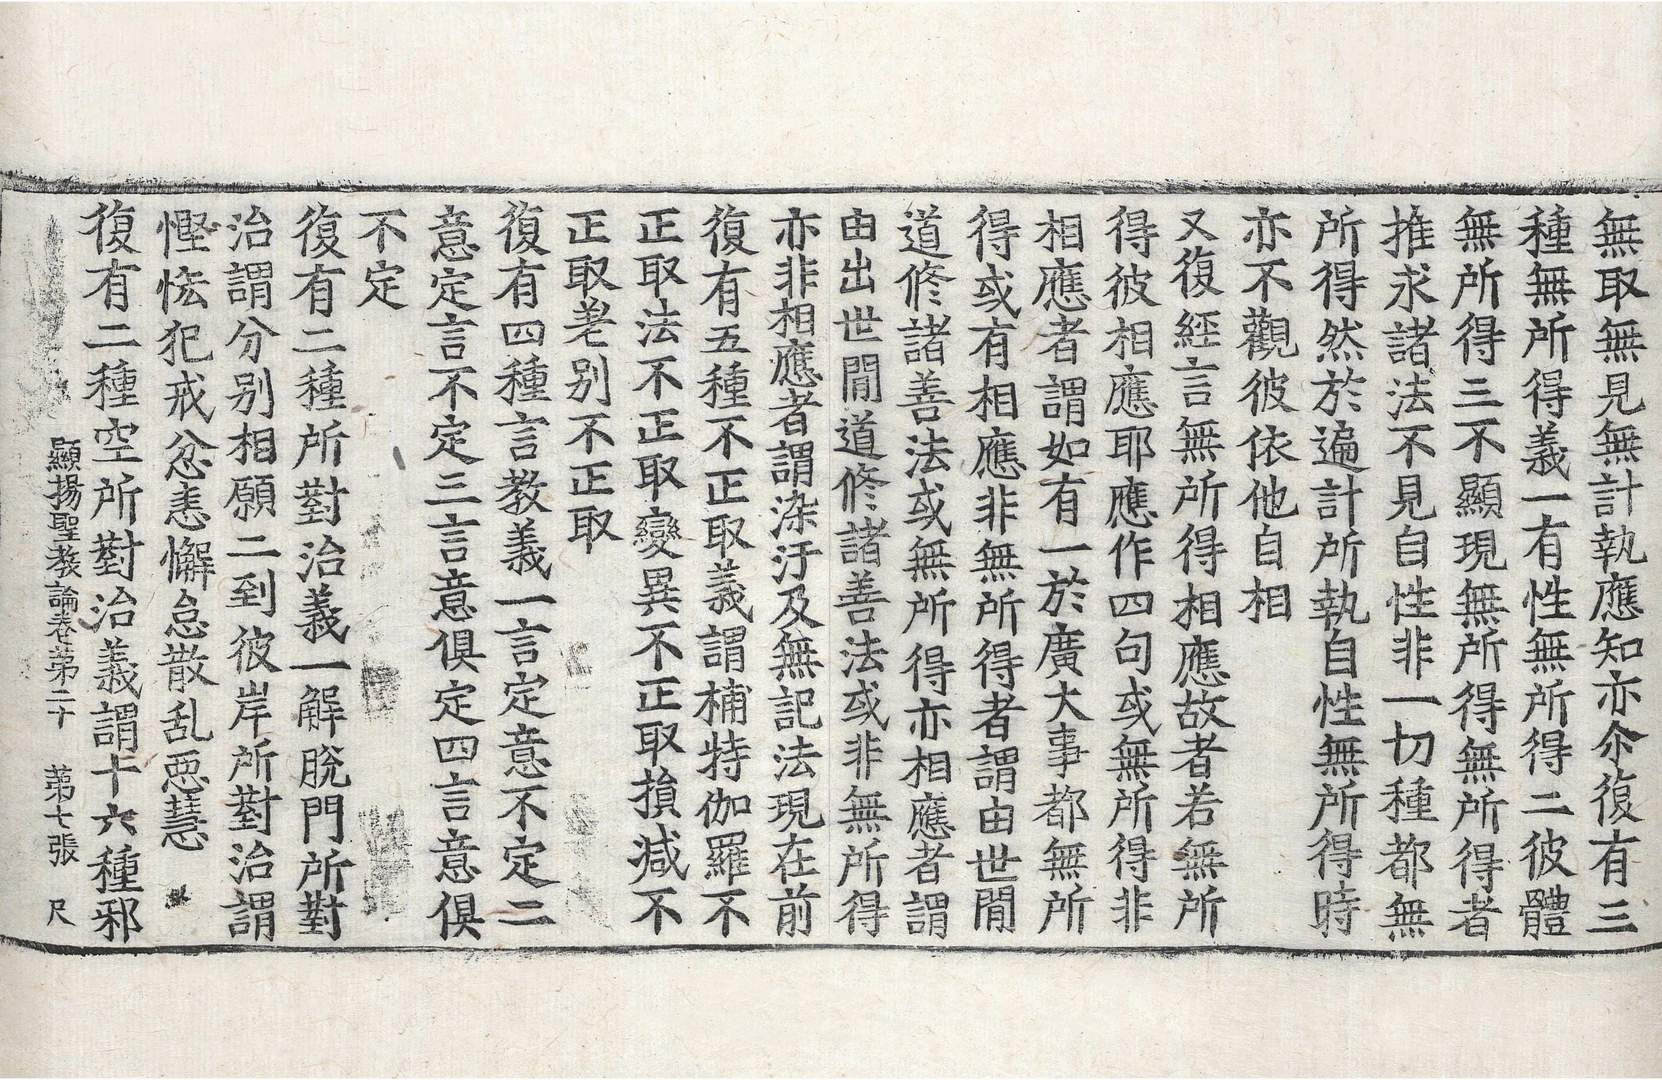 無取無見無計執應知亦尒復有三
種無所得義一有性無所得二彼體
無所得三不顯現無所得無所得者
推求諸法不見自性非一切種都無
所得然於遍計所執自性無所得時
亦不觀彼依他自相
又復經言無所得相應故者若無所
得彼相應耶應作四句或無所得非
相應者謂如有一於廣大事都無所
得或有相應非無所得者謂由世閒
道修諸善法或無所得亦相應者謂
由出世閒道修諸善法或非無所得
亦非相應者謂染汙及無記法現在前
復有五種不正取義謂補特伽羅不
正取法不正取變異不正取損減不
正取差別不正取
復有四種言教義一言定意不定二
意定言不定三言意俱定四言意俱
不定
復有二種所對治義一解脫門所對
治謂分別相願二到彼岸所對治謂
慳悋犯戒忿恚懈怠散乱惡慧
復有二種空所對治義謂十六種邪
顯揚聖教論卷第二十 第七張 尺